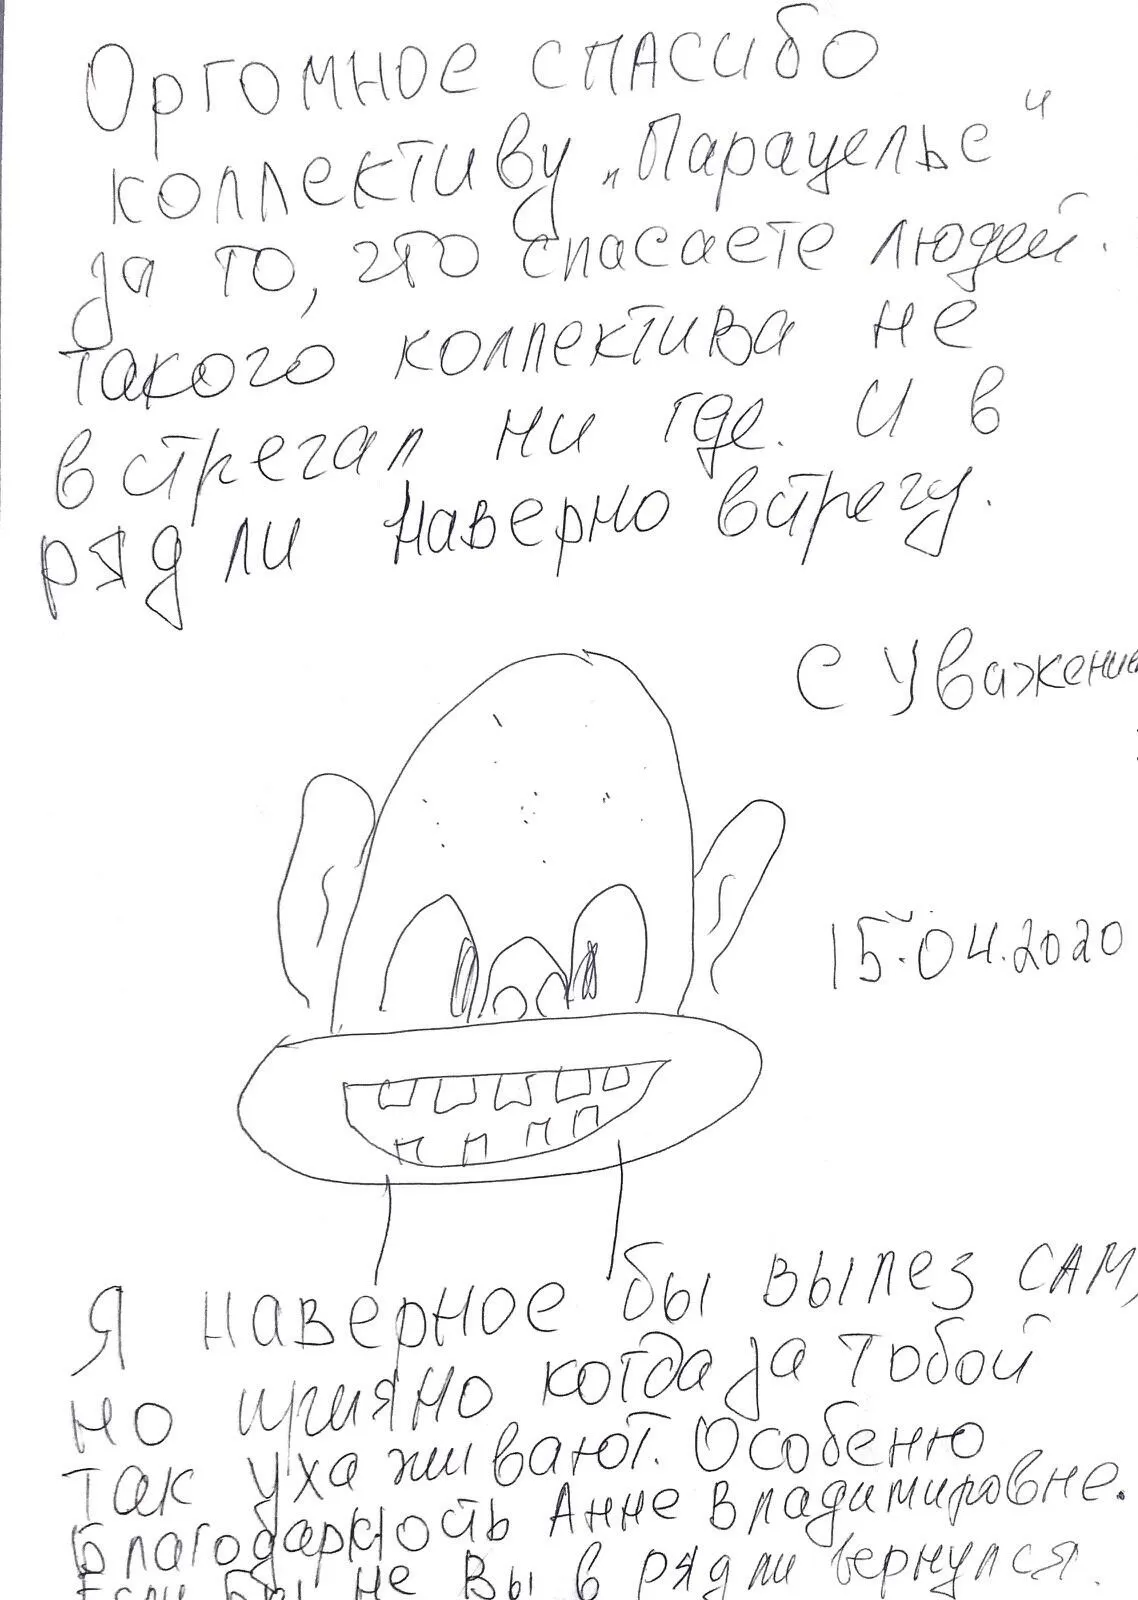 Оргомное спасибо
коллективу „Парацельс“
за то, что спасаете людей.
такого коллектива не
встречал ни где. И в
ряд ли наверно встречу.
С Уважение
15.04.2020
Я наверное бы вылез САМ,
но когда за тобой
так ухаживают. Особеню
благодарность Анне Владимировне.
Если бы не Вы в ряд ли вернулся.